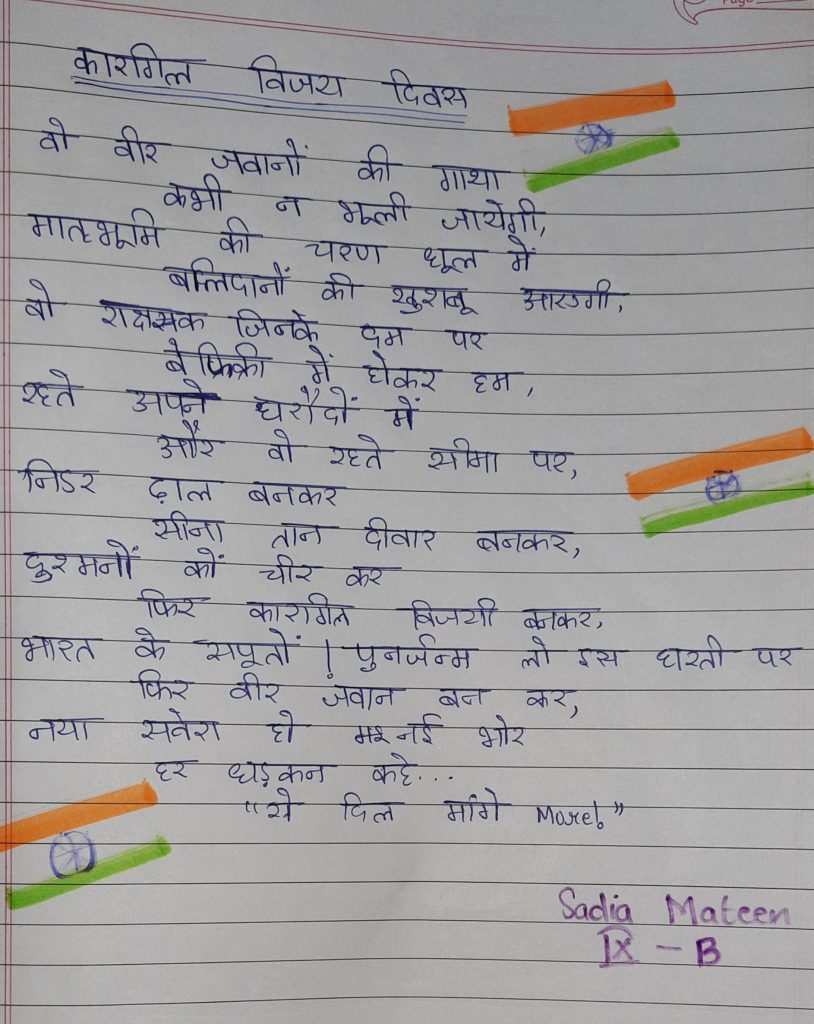 Page
कारगिल विजय दिवस
वो वीर जवानों की गाथा
कभी न भूली जायेगी,
मातृभूमि की चरण धूल में
बलिदानों की खुशबू आएगी,
वो जिनके दम पर
बेफिक्री में होकर हम,
रहते अपने घरौदों में
और वो रहते सीमा पर,
निडर ढ़ाल बनकर
सीना तान दीवार बनकर,
दुश्मनों कों चीर कर
फिर कारगिल विजयी बनकर,
भारत के सपूतों ! पुनर्जन्म लो इस धरती पर
फिर वीर जवान बन कर,
नया सवेरा हो नई भोर
हर धड़कन कहे...
"ये दिल मांगे More!"
Sadia Mateen
IX - B